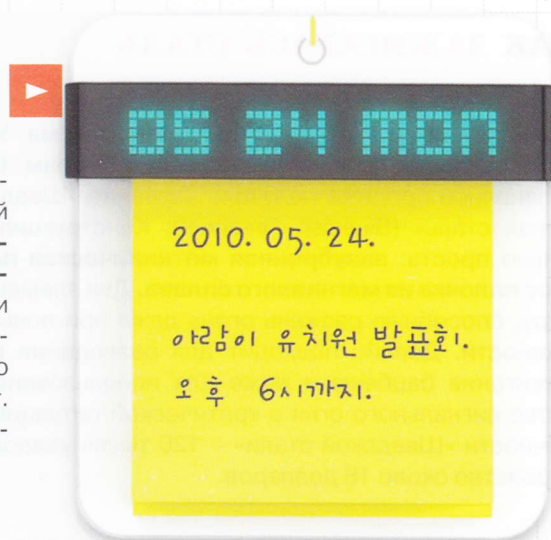 05 24 MON
2010. 05. 24.
아람이 유치원 발표회.
오후 6시까지.